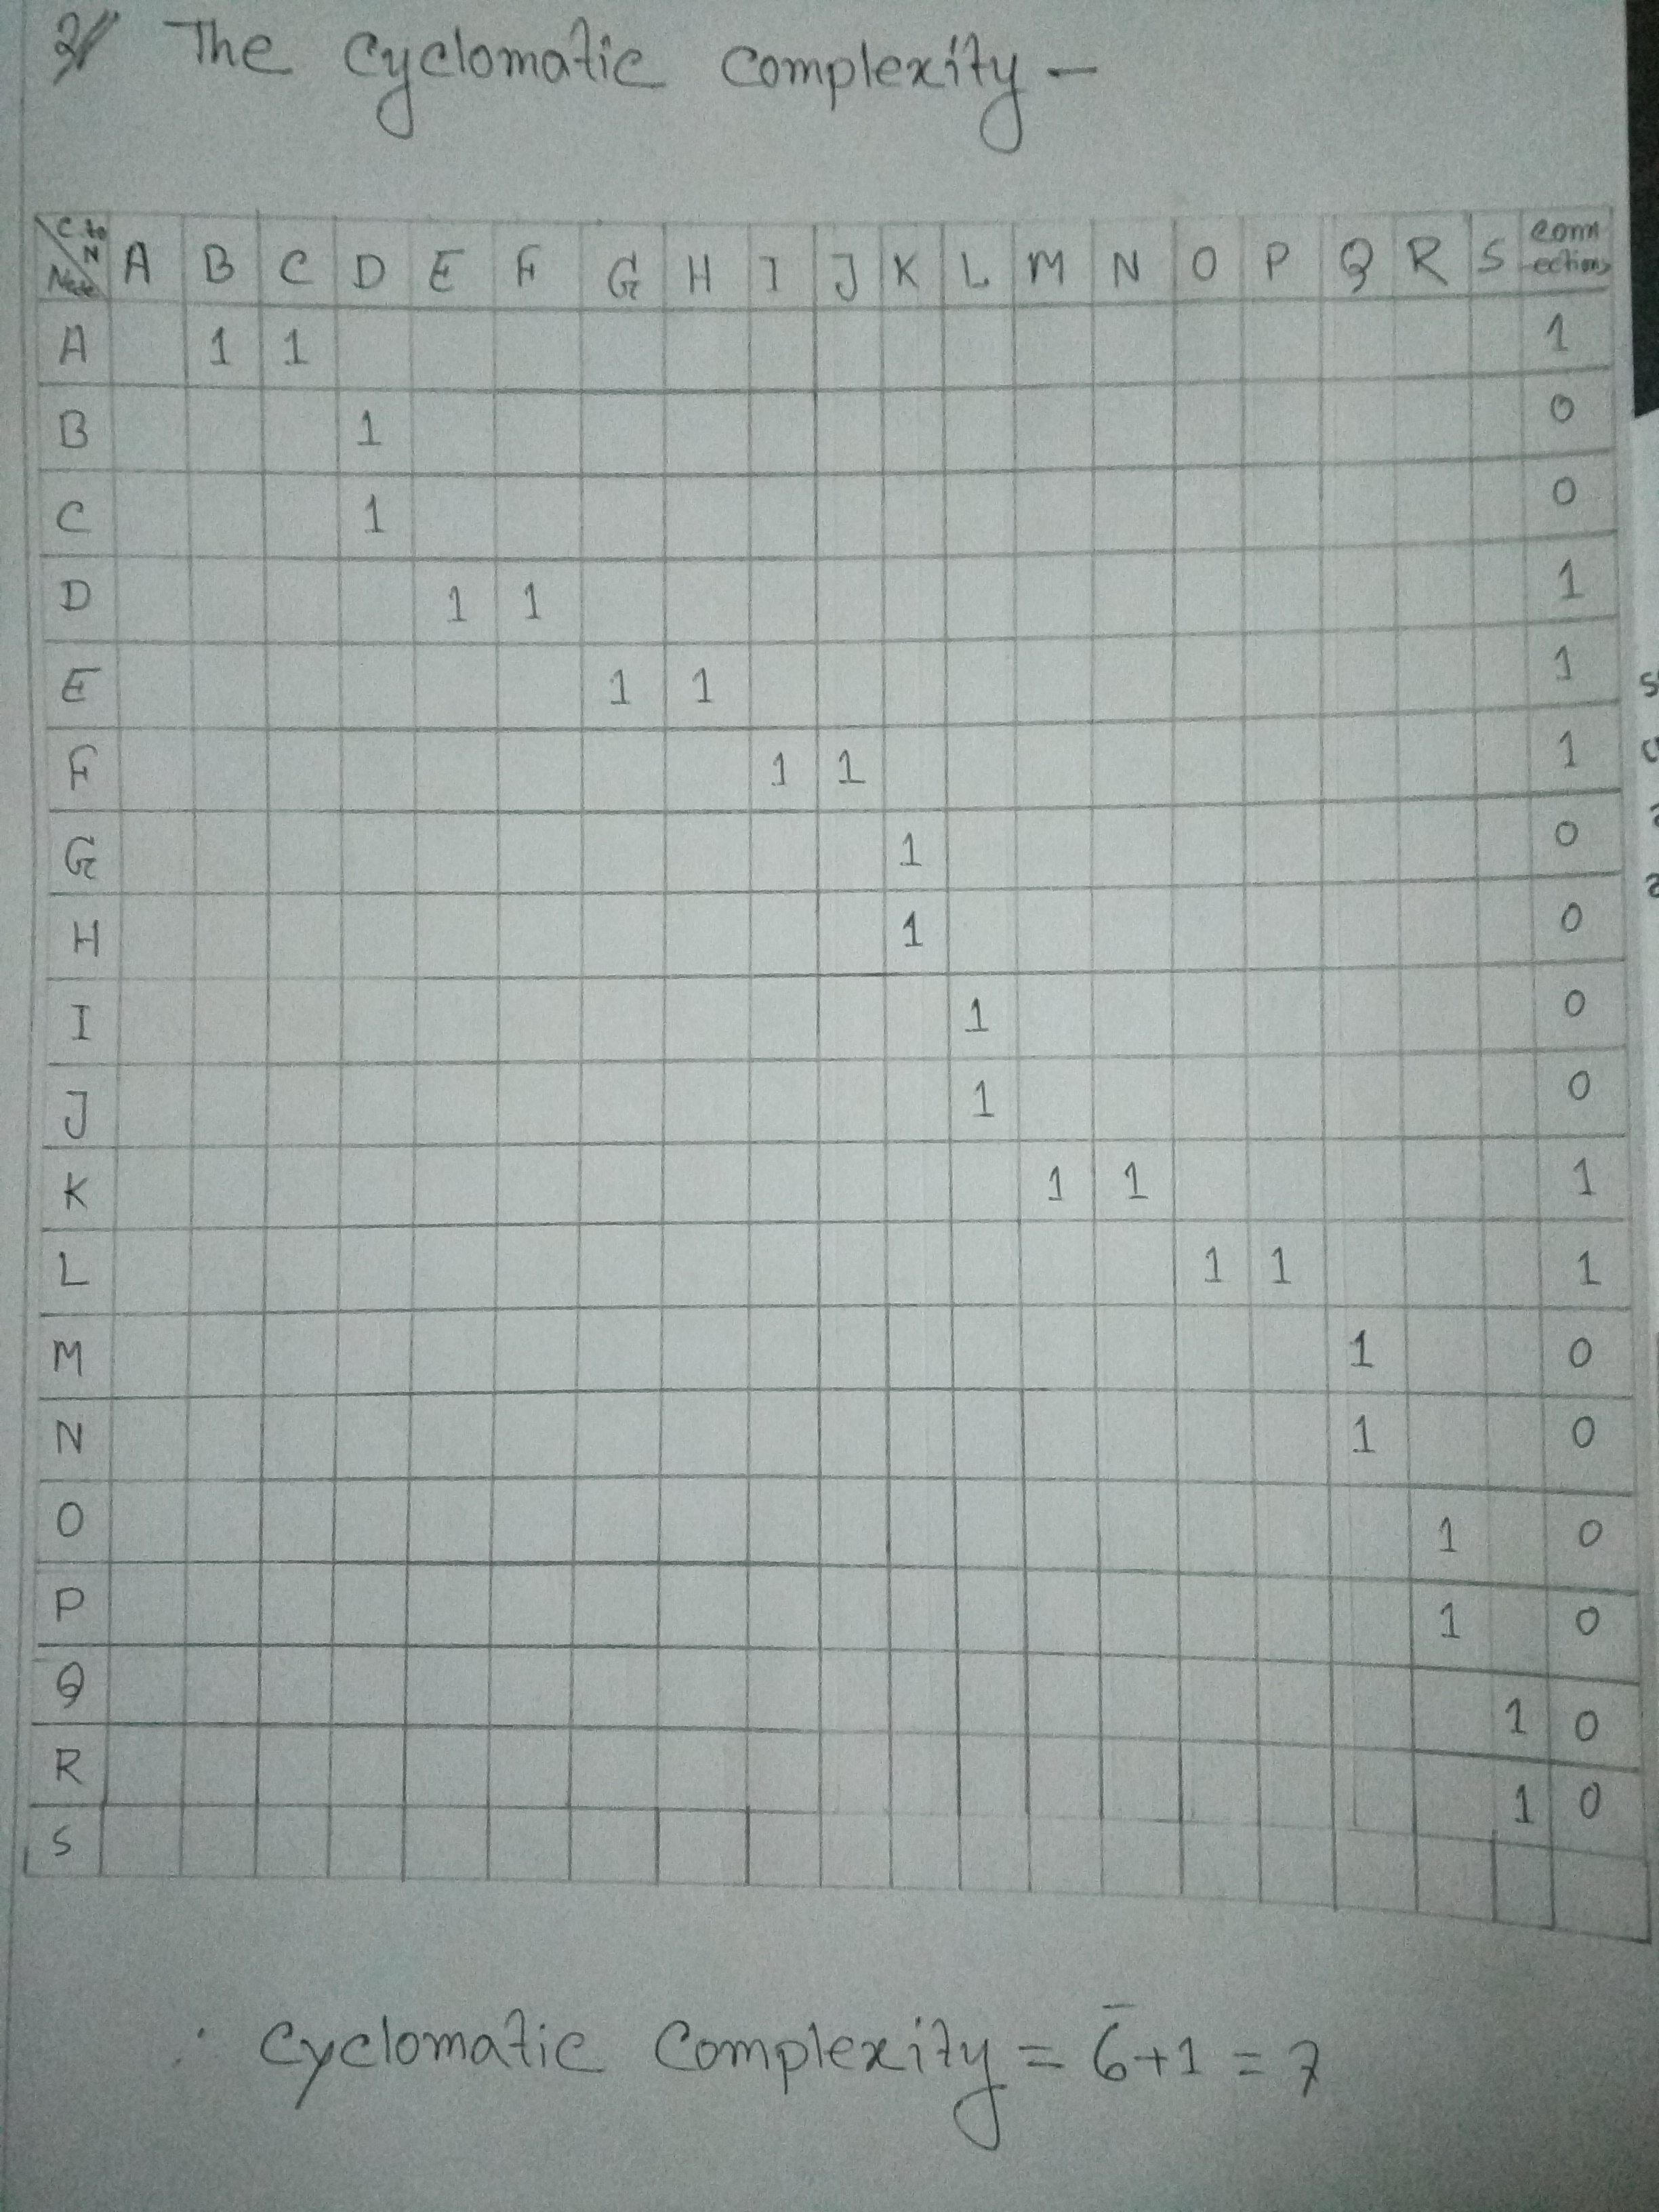 2/ The Cyclomatic Complexity —
C. to N Node A B C D E F G H I J K L M N O P Q R S Connections
A 1 1 1
B 1 0
C 1 0
D 1 1 1
E 1 1 1
F 1 1 1
G 1 0
H 1 0
I 1 0
J 1 0
K 1 1 1
L 1 1 1
M 1 0
N 1 0
O 1 0
P 1 0
Q 1 0
R 1 0
S
∴ Cyclomatic Complexity = 6+1 = 7